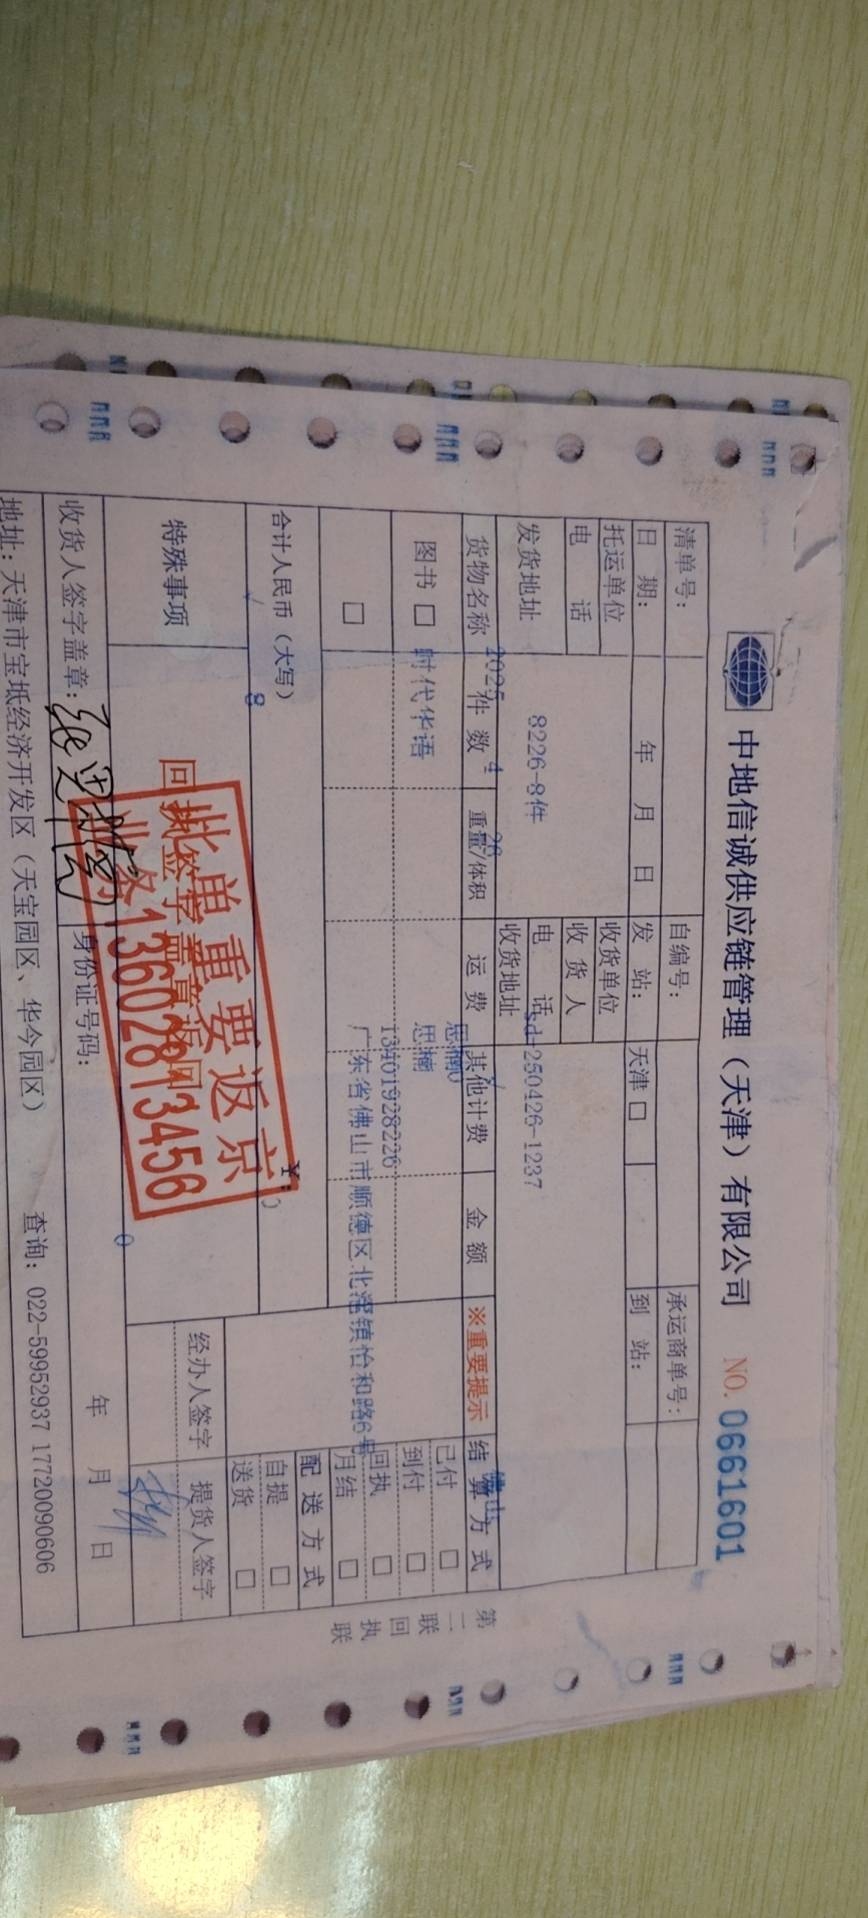 中地信诚供应链管理（天津）有限公司 NO. 0661601
清单号： 自编号： 承运商单号：
日 期： 年 月 日 发 站： 天津 □ 到 站：
托运单位 收货单位
电 话 收 货 人
发货地址 8226-8件 电 话 sd-250426-1237
收货地址
2025 4 26 佛山
货物名称 件 数 重量/体积 运 费 其他计费 金 额 ※重要提示 结 算 方 式
思楠
图书 □ 时代华语 思楠 已付 □
13401928226 到付 □
□ 广东省佛山市顺德区北滘镇怡和路6号 回执 □
月结 □
合计人民币（大写） 8 ¥: 配 送 方 式
自提 □
送货 □
特殊事项 回执签字盖章返回 经办人签字 提货人签字
此单重要返京
业务13602813456
0
收货人签字盖章： 身份证号码： 年 月 日
地址：天津市宝坻经济开发区（天宝园区、华今园区） 查询：022-59952937 17720090606
第二联 回执联